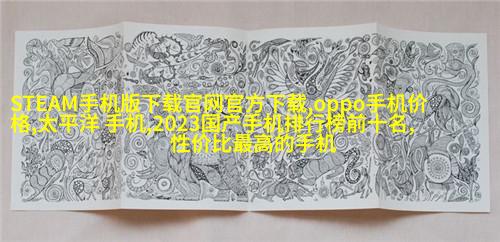 STEAM手机版下载官网官方下载,oppo手机价
格,太平洋 手机,2023国产手机排行榜前十名,
性价比最高的手机